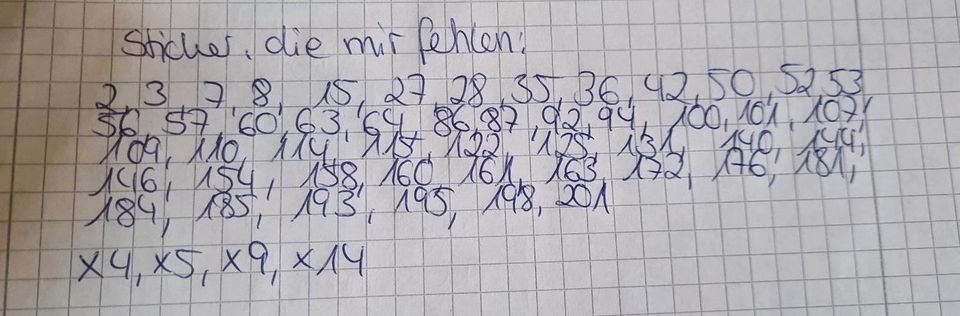 Sticker, die mir fehlen:
2, 3, 7, 8, 15, 27, 28, 35, 36, 42, 50, 52, 53,
56, 57, 60, 63, 64, 86, 87, 92, 94, 100, 101, 107,
109, 110, 114, 115, 122, 125, 131, 140, 144,
146, 154, 158, 160, 161, 163, 172, 176, 181,
184, 185, 193, 195, 198, 201
X4, X5, X9, X14